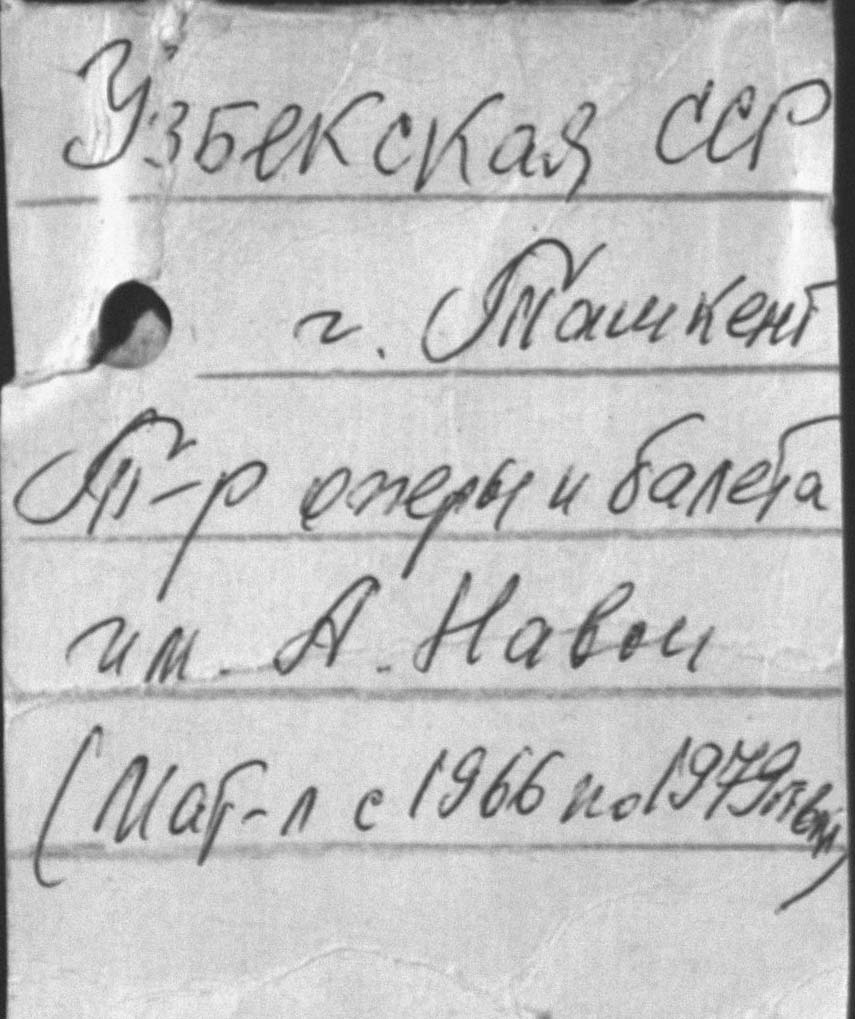 Узбекская ССР
г. Ташкент
Т-р оперы и балета
им. А. Навои
(Мат-л с 1966 по 1979